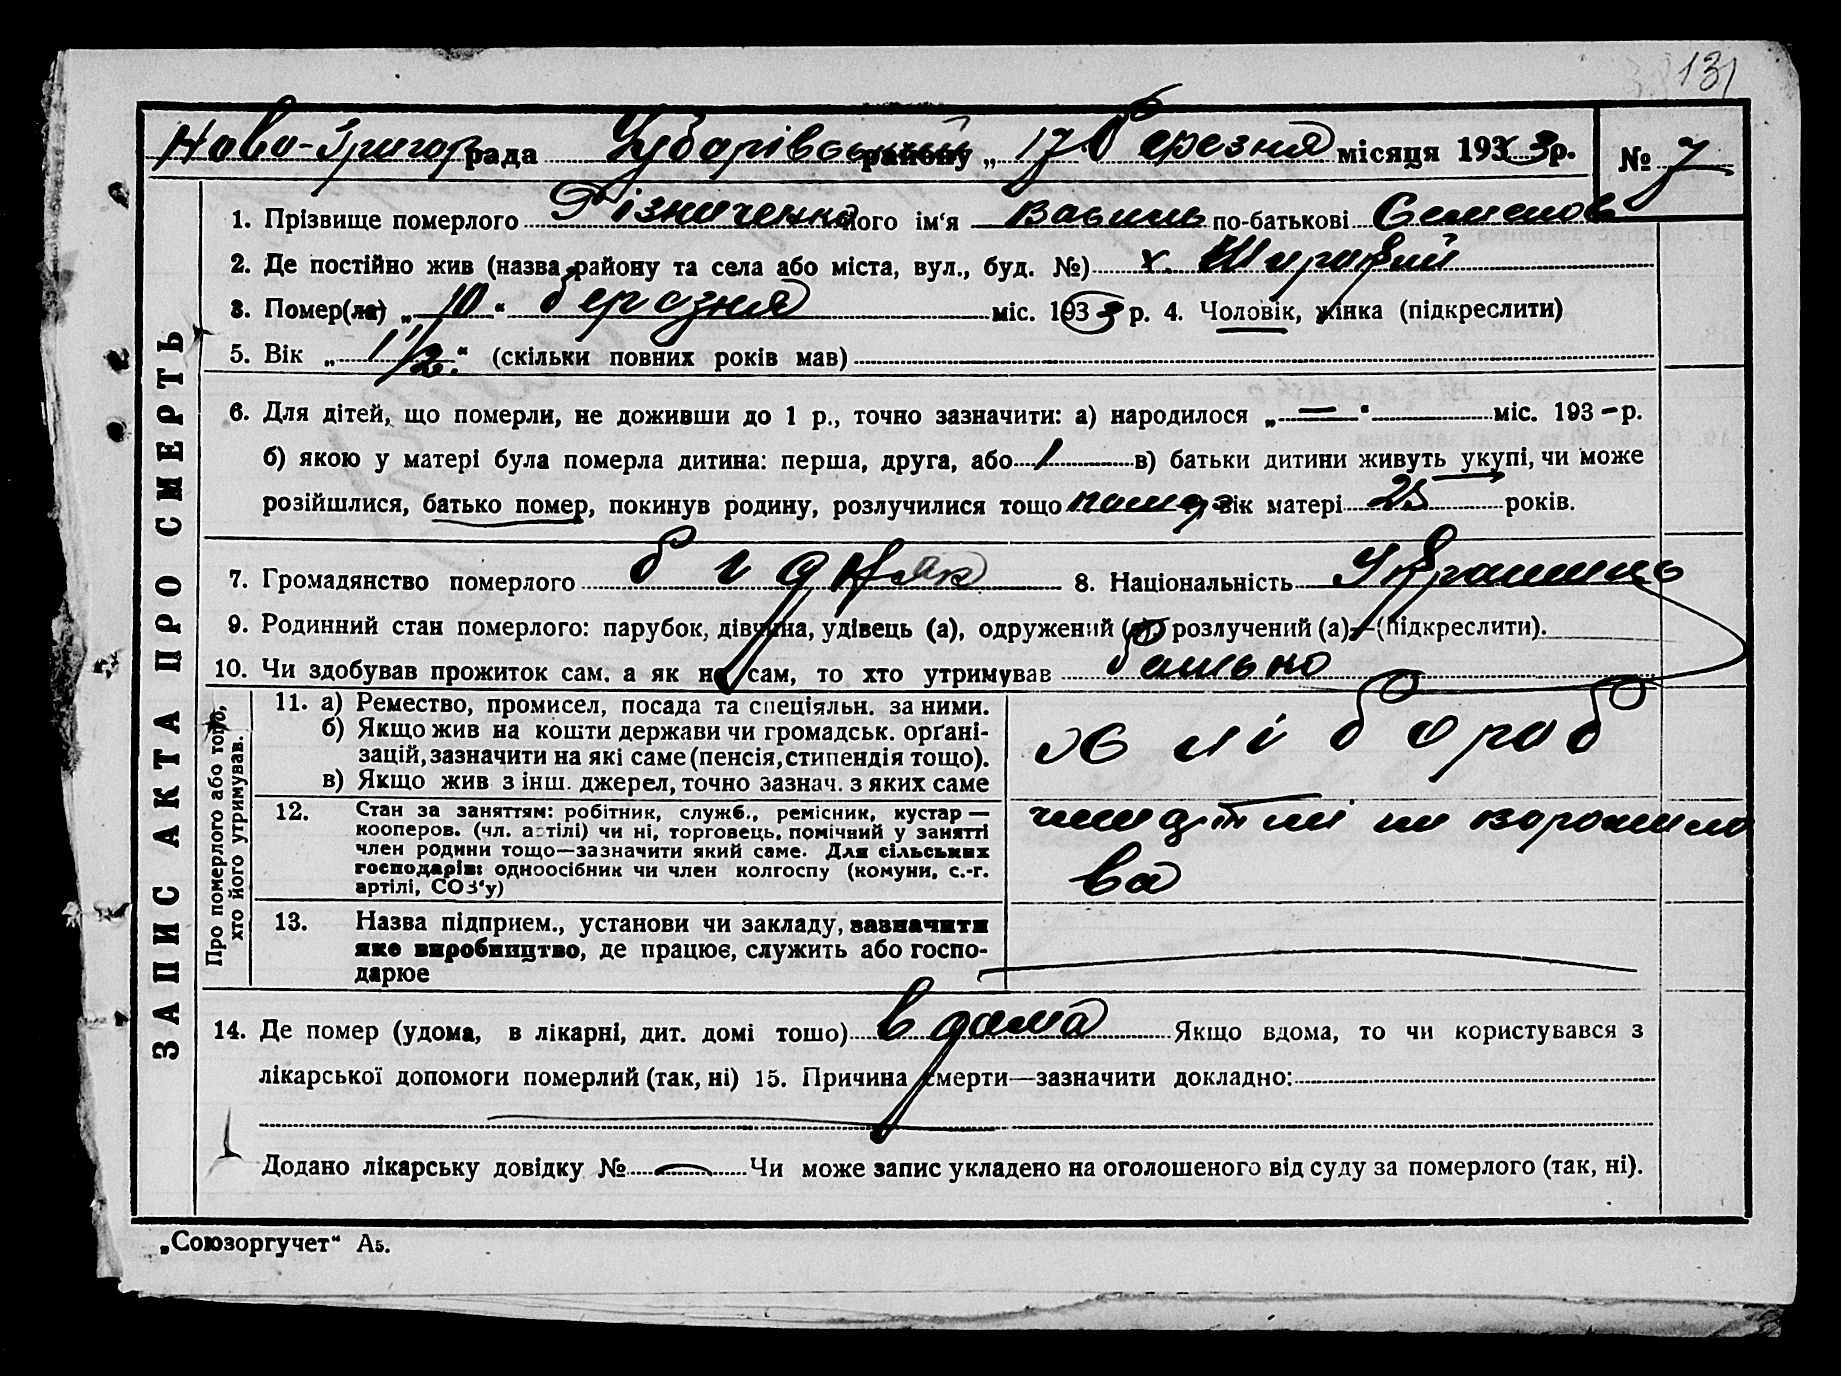 131
Ново-Григор рада Чубарівський району „17" березня місяця 1933 р. № 7
ЗАПИС АКТА ПРО СМЕРТЬ
1. Прізвище померлого Різниченко його ім‘я Василь по-батькові Семенов
2. Де постійно жив (назва району та села або міста, вул., буд. №) х. Широкий
3. Помер(ла) „10" березня міс. 1933 р. 4. Чоловік, жінка (підкреслити)
5. Вік „1 1/2" (скільки повних років мав)
6. Для дітей, що померли, не доживши до 1 р., точно зазначити: а) народилося „—" міс. 193 – р.
б) якою у матері була померла дитина: перша, друга, або 1 в) батьки дитини живуть укупі, чи може
розійшлися, батько помер, покинув родину, розлучилися тощо вік матері 25 років.
7. Громадянство померлого бідняк 8. Національність Українець
9. Родинний стан померлого: парубок, дівчина, удівець (а), одружений (а) розлучений (а)—(підкреслити).
10. Чи здобував прожиток сам, а як не сам, то хто утримував батько
Про померлого або того, хто його утримував.
11. а) Ремество, промисел, посада та спеціяльн. за ними.
б) Якщо жив на кошти держави чи громадськ. орґані-
зацій, зазначити на які саме (пенсія, стипендія тощо).
в) Якщо жив з інш. джерел, точно зазнач. з яких саме
хлібороб
12. Стан за заняттям: робітник, служб., ремісник, кустар—
кооперов. (чл. артілі) чи ні, торговець, помічний у занятті
член родини тощо—зазначити який саме. Для сільських
господарів: одноосібник чи член колгоспу (комуни, с.-г.
артілі, СОЗ‘у)
член артілі ім ворошило
ва
13. Назва підприєм., установи чи закладу, зазначити
яке виробництво, де працює, служить або госпо-
дарює
14. Де помер (удома, в лікарні, дит. домі тошо) вдома Якщо вдома, то чи користувався з
лікарської допомоги померлий (так, ні) 15. Причина смерти—зазначити докладно:
Додано лікарську довідку № — Чи може запис укладено на оголошеного від суду за померлого (так, ні).
„Союзоргучет" А5.